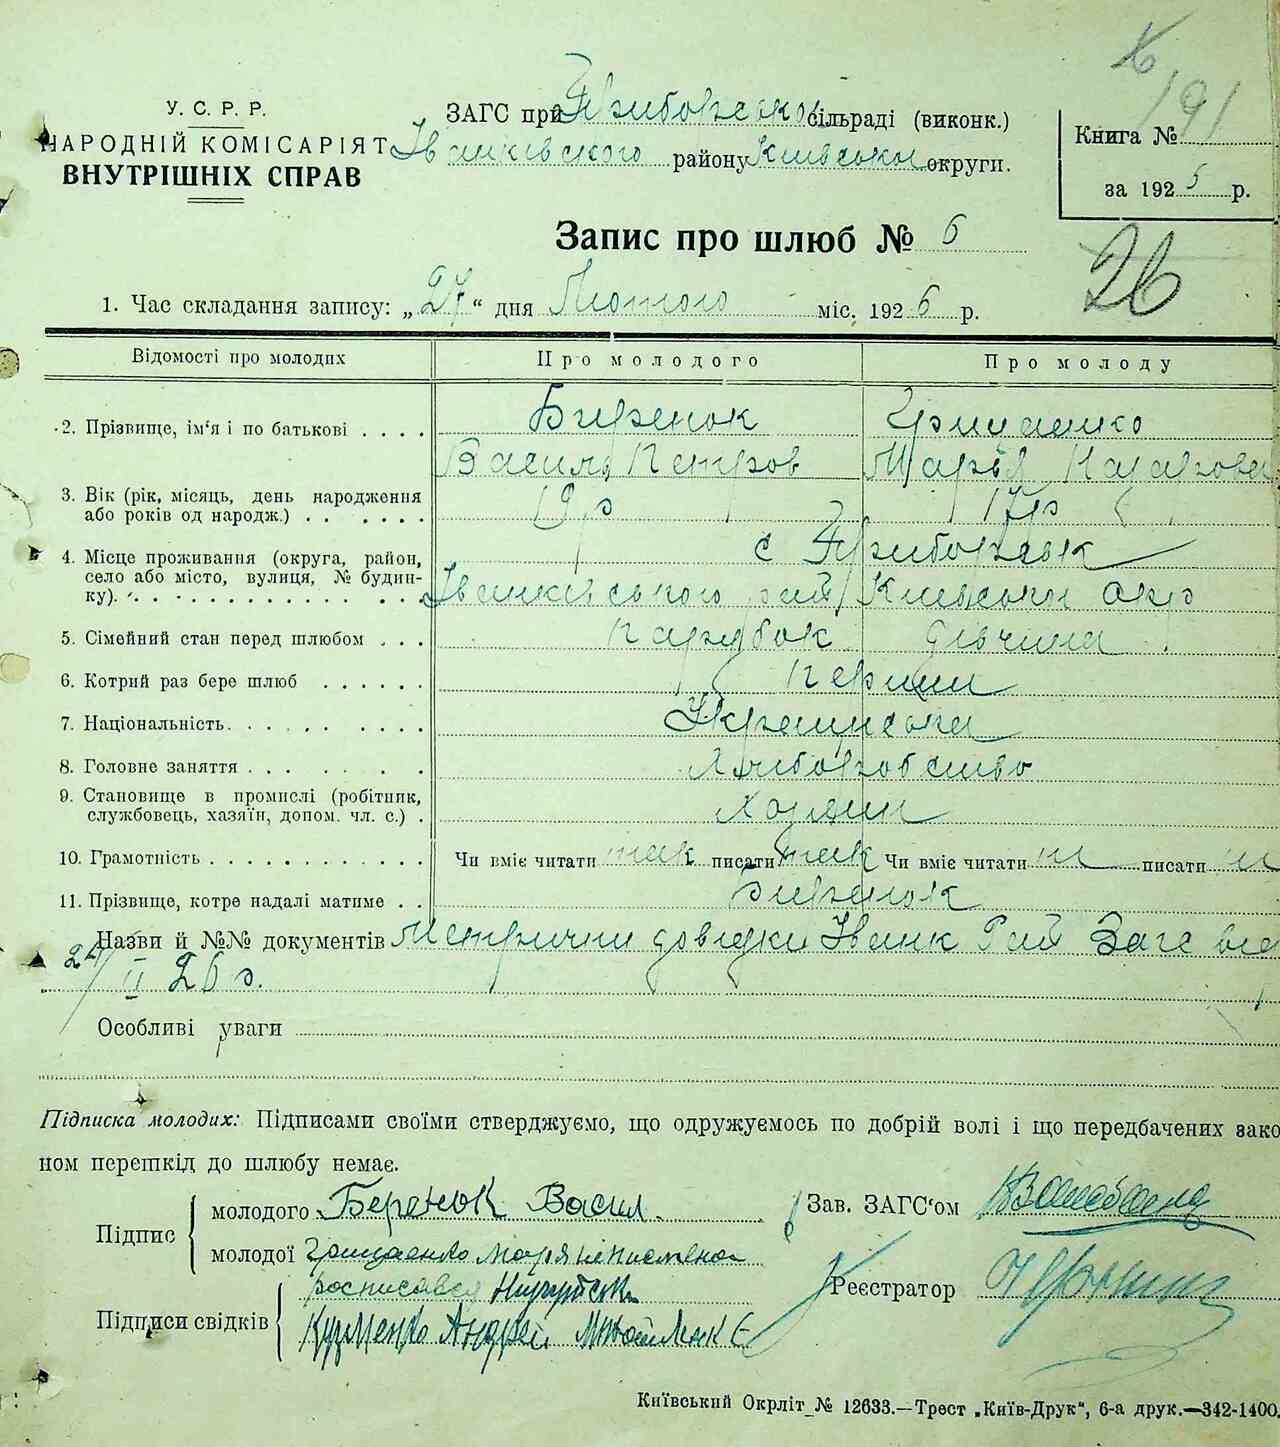 191
У. С. Р. Р.
НАРОДНІЙ КОМІСАРІЯТ
ВНУТРІШНІХ СПРАВ
ЗАГС при Приборськ сільраді (виконк.)
Іванківского району Київської округи.
Книга №
за 1925 р.
Запис про шлюб № 6
26
1. Час складання запису: „27“ дня Лютого міс. 1926 р.
Відомості про молодих Про молодого Про молоду
2. Прізвище, ім'я і по батькові . . . . Биренок Грищенко
Василь Петров Марья Назарова
3. Вік (рік, місяць, день народження
або років од народж.) . . . . . . 19 р 17 р
4. Місце проживання (округа, район,
село або місто, вулиця, № будин-
ку). с Приборськ
Іванківського рай Київськоі окр
5. Сімейний стан перед шлюбом . . . парубок дівчина
6. Котрий раз бере шлюб . . . . . . перший
7. Національність. Украинска
8. Головне заняття Хліборобство
9. Становище в промислі (робітник,
службовець, хазяїн, допом. чл. с.) . Хозяин
10. Грамотність Чи вміє читати так писати так Чи вміє читати ні писати ні
11. Прізвище, котре надалі матиме . . Биренок
Назви й №№ документів Метричні довідки Іванк Рай Загс від
24/II 26 р.
Особливі уваги
Підписка молодих: Підписами своїми стверджуємо, що одружуємось по добрій волі і що передбачених зако-
ном перешкід до шлюбу немає.
Підпис
молодого Беренок Васил
молодої Грищенко Маря неписмена
росписався
Підписи свідків
Кузменко Андрей
Зав. ЗАГС'ом
Реєстратор
Київський Окрліт № 12633.—Трест „Київ-Друк“, 6-а друк.—342-1400.